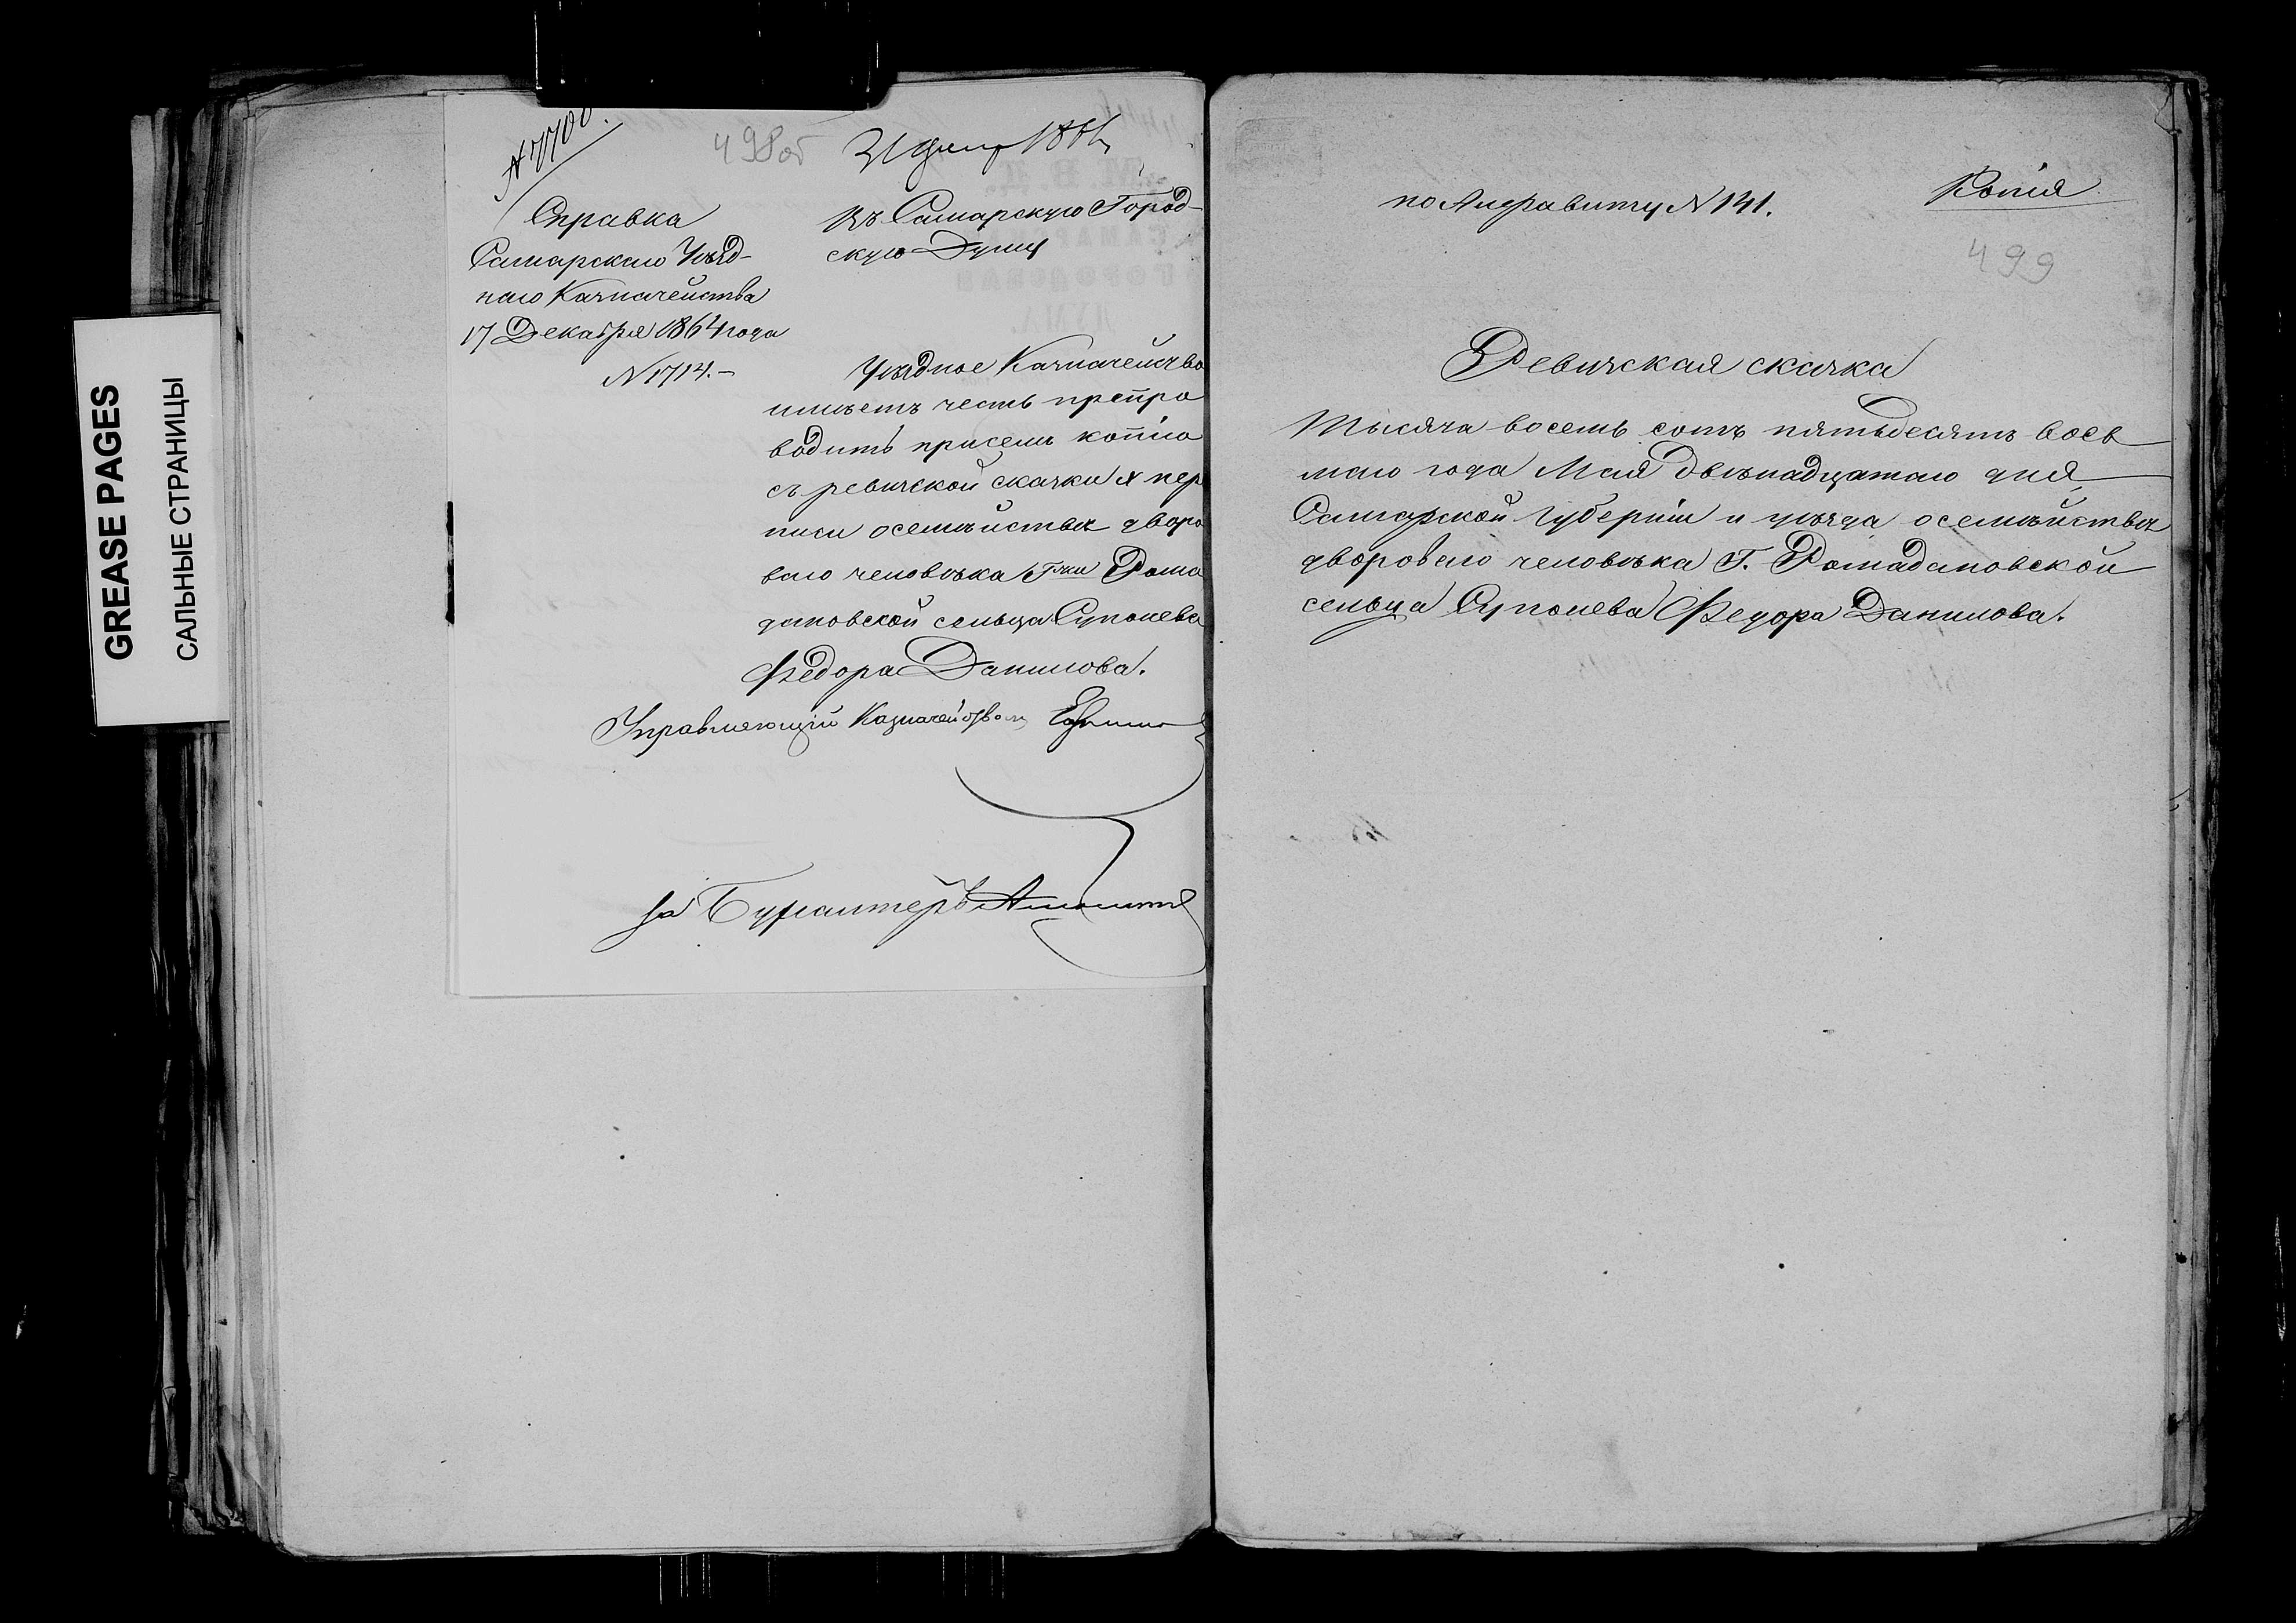 GREASE PAGES
САЛЬНЫЕ СТРАНИЦЫ
498об
Справка
Самарскаго Уѣзд-
наго Казначейства
17 Декабря 1864 года
N 1714.-
Въ Самарскую Город-
скую Думу
Уѣздное Казначейство
имѣетъ честь препро
водить присемъ копію
съ ревизской скаски X пер
писи осемѣйствѣ дворо
ваго человѣка Гжи Рома
дановской сельца Супонева
Федора Данилова.
Управляющій Казначействомъ
за Бухгалтера
по Алфавиту N 141.
Копія
499
Ревизская скаска
Тысяча восемь сотъ пятьдесятъ вось
маго года Мая двѣнадцатаго дня
Самарской Губерніи и уѣзда осемѣйствѣ
двороваго человѣка Г. Ромадановской
сельца Супонева Федора Данилова.